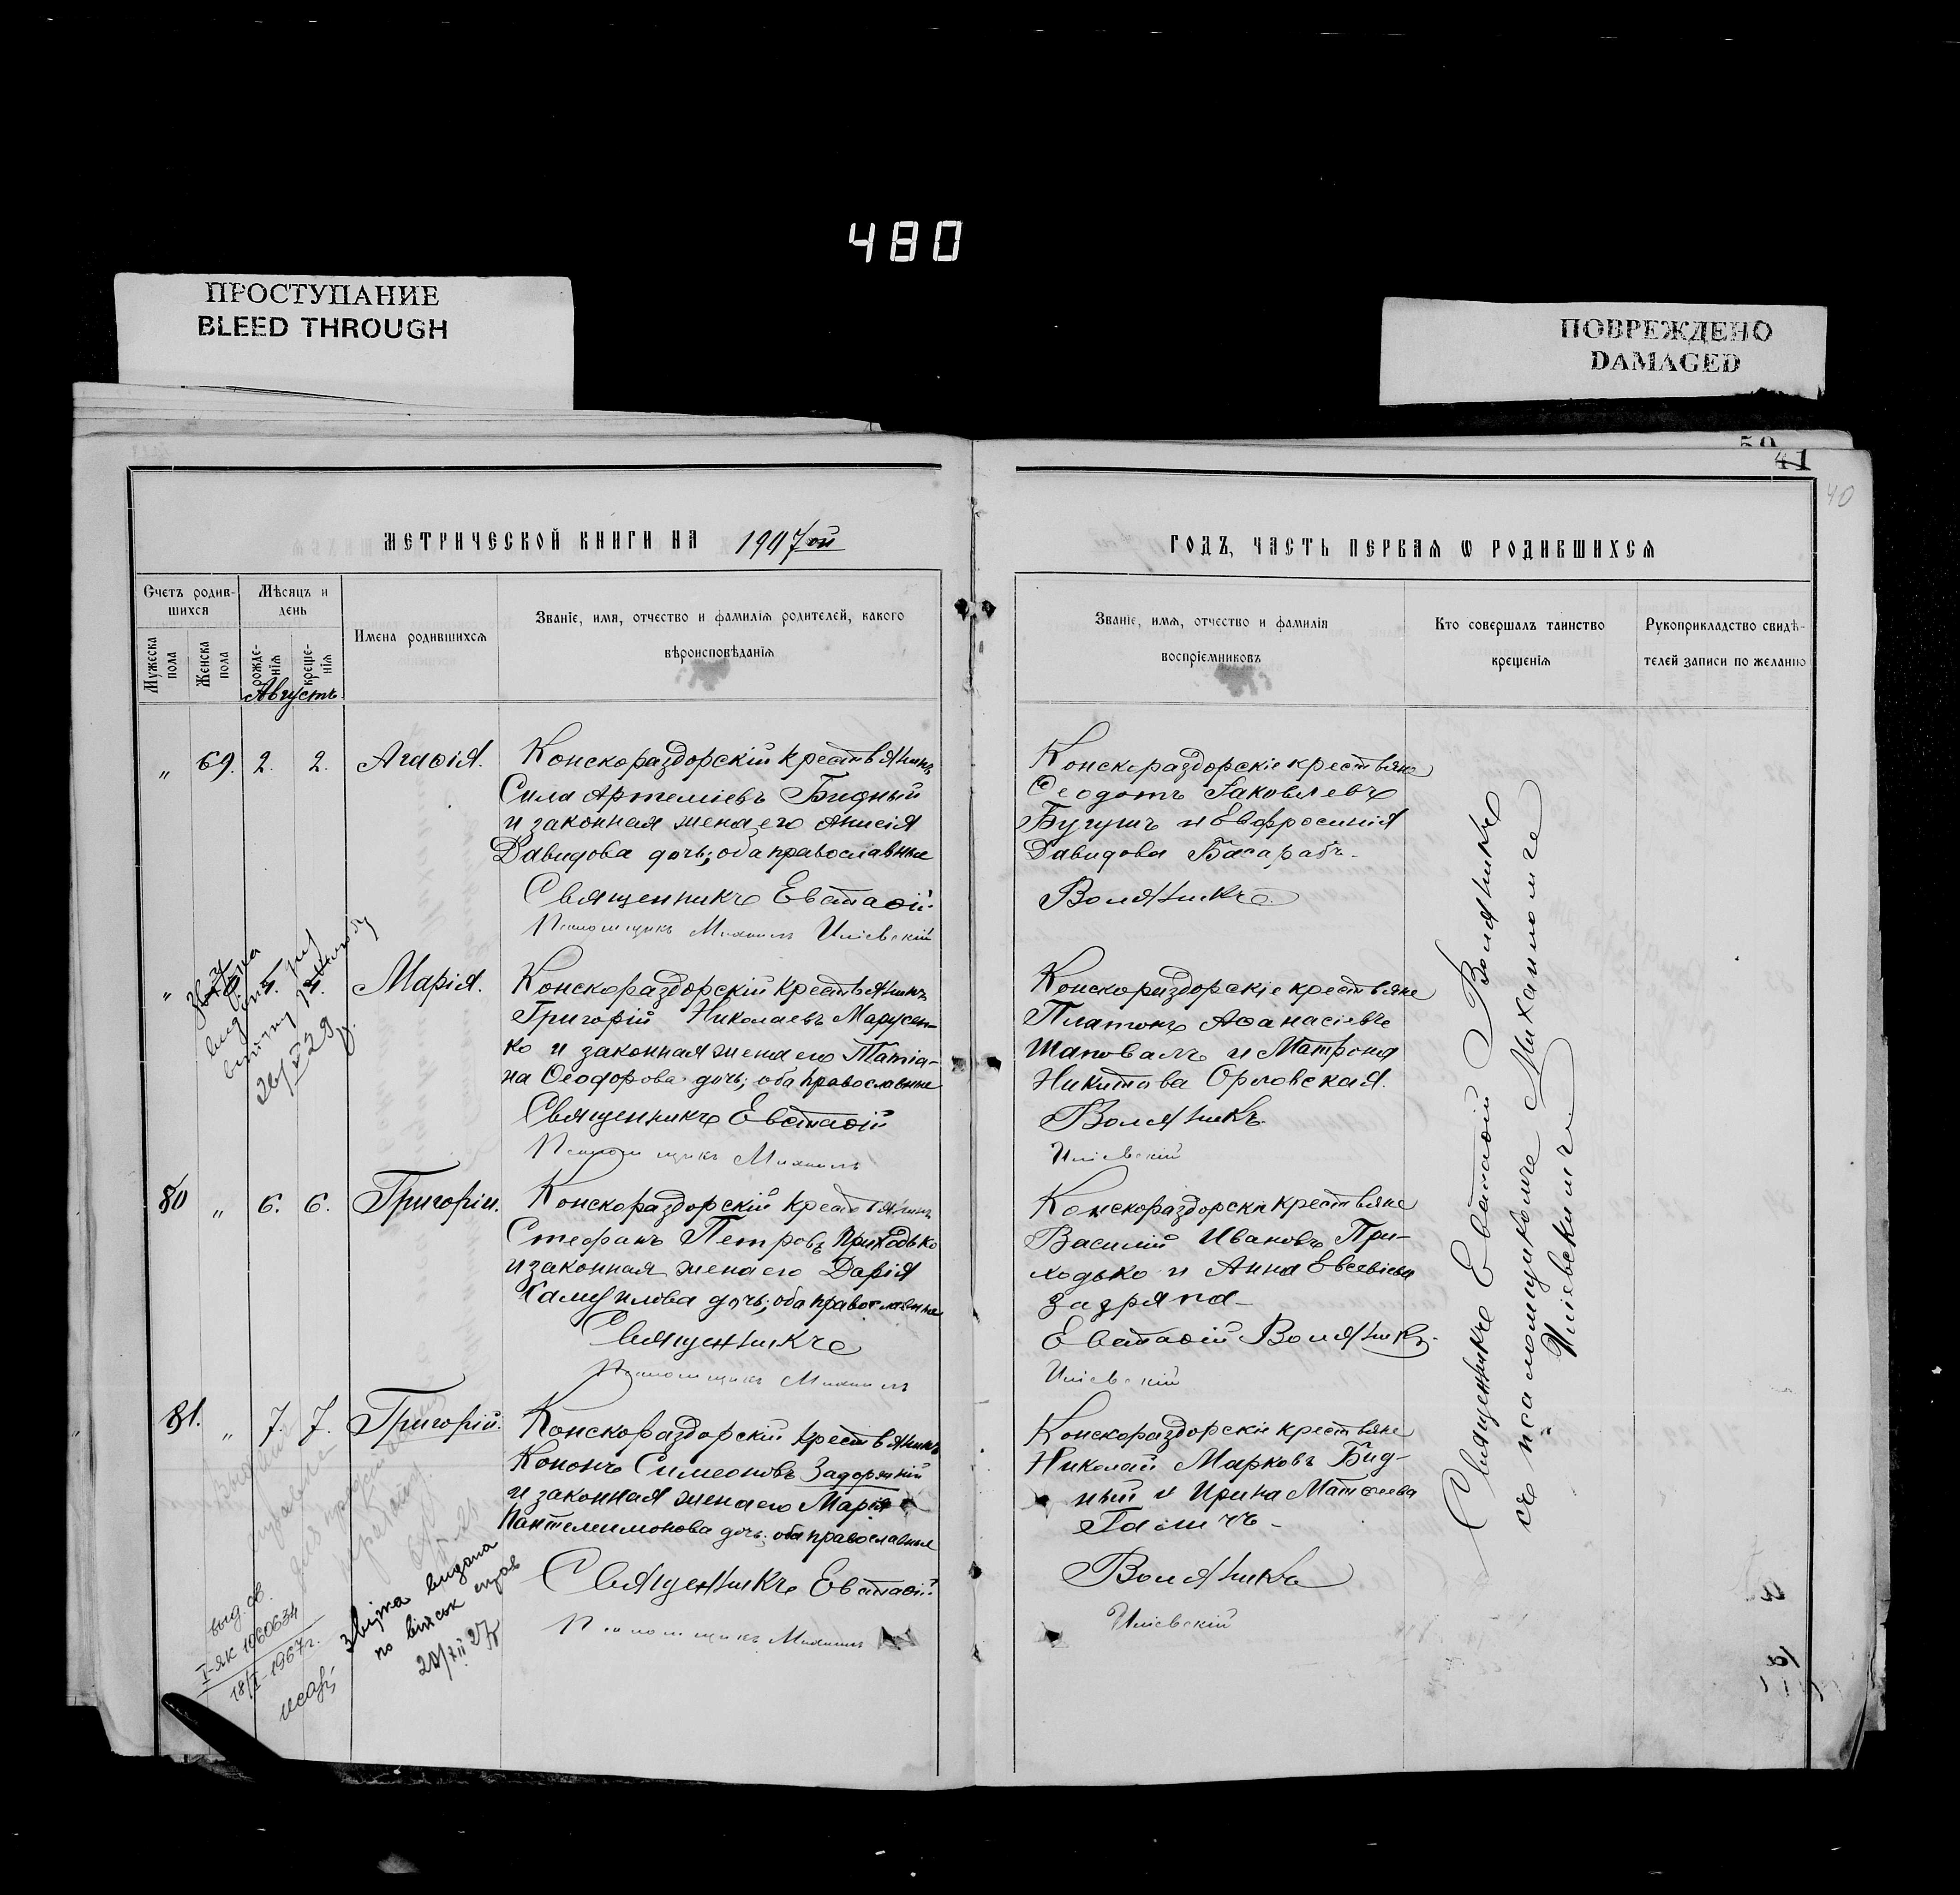 480
ПРОСТУПАНИЕ
BLEED THROUGH
ПОВРЕЖДЕНО
DAMAGED
50
41
40
МЕТРИЧЕСКОЙ КНИГИ НА 1907ой
ГОДЪ, ЧАСТЬ ПЕРВАЯ Ѡ РОДИВШИХСЯ
Счетъ родив-
шихся
Мужеска пола
Женска пола
Мѣсяцъ и
день
рожде-
нія
креще-
нія
Августъ
Имена родившихся
Званіе, имя, отчество и фамилія родителей, какого
вѣроисповѣданія
Званіе, имя, отчество и фамилія
воспріемниковъ
Кто совершалъ таинство
крещенія
Рукоприкладство свидѣ-
телей записи по желанію
„ 69. 2. 2. Агаѳія.
Конскораздорскій крестьянинъ
Сила Артеміевъ Бидный
и законная жена его Анисія
Давидова дочь; оба православные
Священникъ Евстаѳій
Псаломщикъ Михаилъ Иліевскій
Конскораздорскіе крестьяне
Ѳеодотъ Іаковлевъ
Бугушъ и Евфросинія
Давидова Басарабъ.
Воляникъ.
„ 4. 4. Марія.
видана
26/V 29 р.
Конскораздорскій крестьянинъ
Григорій Николаевъ Марусен-
ко и законная жена его Татіа-
на Ѳеодорова дочь; оба православные
Священникъ Евстаѳій
Псаломщикъ Михаилъ
Конскораздорскіе крестьяне
Платонъ Аѳанасіевъ
Шаповалъ и Матрона
Никитова Орловская.
Воляникъ.
Иліевскій
80 „ 6. 6. Григорій.
Конскораздорскій крестьянинъ
Стефанъ Петровъ Приходько
и законная жена его Дарія
Самуилова дочь; оба православные
Священникъ
Псаломщикъ Михаилъ
Конскораздорскіе крестьяне
Василій Ивановъ При-
ходько и Анна Евсевіева
Евстаѳій Воляникъ.
Иліевскій
81. „ 7. 7. Григорій.
Конскораздорскій крестьянинъ
Кононъ Симеоновъ Задорожній
и законная жена его Марія
Пантелеимонова дочь; оба православные
Священникъ Евстаѳій
Псаломщикъ Михаилъ
Конскораздорскіе крестьяне
Николай Марковъ Бид-
ный и Ирина Матѳеева
Воляникъ
Иліевскій
Священникъ Евстаѳій Воляникъ
съ псаломщикомъ Михаиломъ
Иліевскимъ
выд. св.
I-ЯК 1060634
18/I-1967г.
звiрка видана
по військ справ